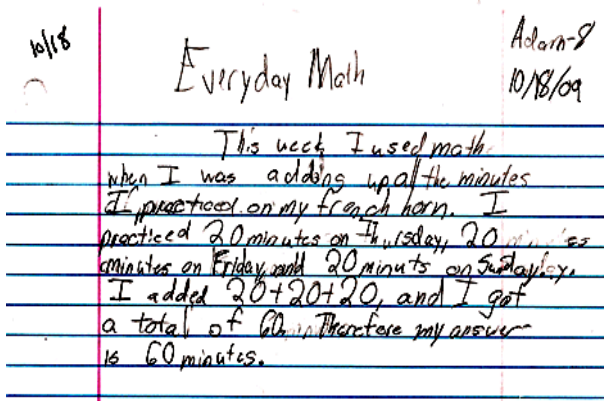 10/18
Adam-8
Everyday Math
10/18/09
This week I used math
when I was adding up all the minutes
I practiced on my french horn. I
practiced 20 minutes on Thursday, 20
minutes on Friday, and 20 minuts on Sunday.
I added 20+20+20, and I got
a total of 60 Therefore my answer
is 60 minutes.